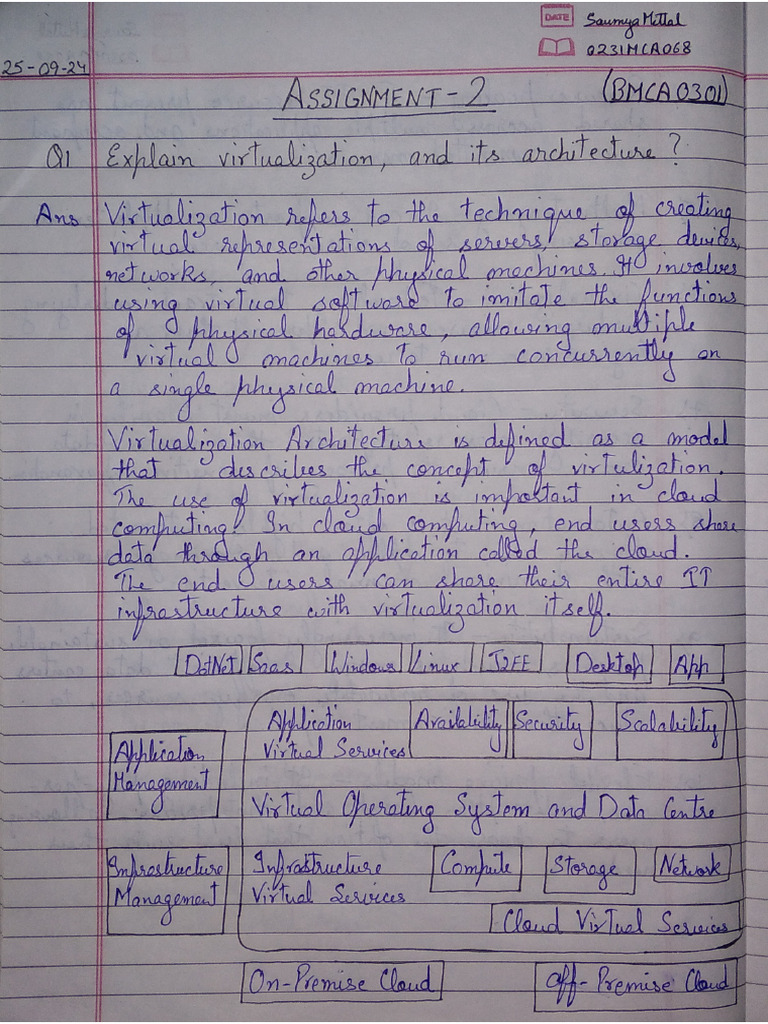 DATE Saumya Mittal
0231MCA068
25-09-24
ASSIGNMENT-2 (BMCA0301)
Q1 Explain virtualization, and its architecture?
Ans Virtualization refers to the technique of creating
virtual representations of servers, storage devices,
networks, and other physical machines. It involves
using virtual software to imitate the functions
of physical hardware, allowing multiple
virtual machines to run concurrently on
a single physical machine.
Virtualization Architecture is defined as a model
that describes the concept of virtulization.
The use of virtualization is important in cloud
computing. In cloud computing, end users share
data through an application called the cloud.
The end users can share their entire IT
infrastructure with virtualization itself.
DotNet Saas Windows Linux J2EE Desktop App
Application Availability Security Scalability
Virtual Services
Application
Management
Virtual Operating System and Data Centre
Infrastructure Infrastructure Compute Storage Network
Management Virtual Services
Cloud Virtual Services
On-Premise Cloud Off-Premise Cloud